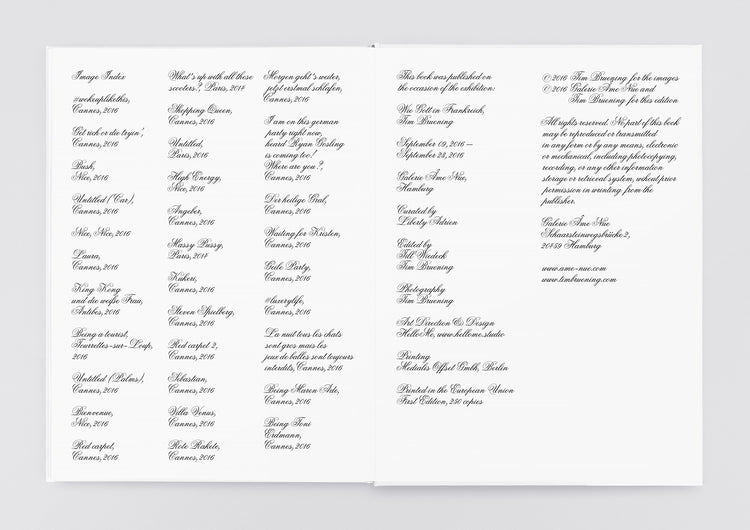 Image Index
#wokeuplikethis,
Cannes, 2016
Get rich or die tryin',
Cannes, 2016
Bush,
Nice, 2016
Untitled (Car),
Cannes, 2016
Nice, Nice, 2016
Laura,
Cannes, 2016
King Kong
und die weiße Frau,
Antibes, 2016
Being a tourist,
Tourrettes-sur-Loup,
2016
Untitled (Palms),
Cannes, 2016
Bienvenue,
Nice, 2016
Red carpet,
Cannes, 2016
What's up with all these
scooters?, Paris, 2014
Shopping Queen,
Cannes, 2016
Untitled,
Paris, 2016
High Energy,
Nice, 2016
Angeber,
Cannes, 2016
Massy Pussy,
Paris, 2014
Cannes, 2016
Steven Spielberg,
Cannes, 2016
Red carpet 2,
Cannes, 2016
Sebastian,
Cannes, 2016
Villa Venus,
Cannes, 2016
Rote Rakete,
Cannes, 2016
Morgen geht's weiter,
jetzt erstmal schlafen,
Cannes, 2016
I am on this german
party right now,
heard Ryan Gosling
is coming too!
Where are you?,
Cannes, 2016
Der heilige Gral,
Cannes, 2016
Waiting for Kristen,
Cannes, 2016
Gede Party,
Cannes, 2016
#luxerylife,
Cannes, 2016
La nuit tous les chats
sont gros mais les
jeux de balles sont toujours
interdits, Cannes, 2016
Being Maren Ade,
Cannes, 2016
Being Toni
Erdmann,
Cannes, 2016
This book was published on
the occasion of the exhibition:
Wie Gott in Frankreich,
Tim Bruening
September 09, 2016 —
September 28, 2016
Galerie Âme Nue,
Hamburg
Curated by
Liberty Adrien
Edited by
Till Wiedeck
Tim Bruening
Photography
Tim Bruening
Art Direction & Design
HelloMe, www.hellome.studio
Printing
Medialis Offset GmbH, Berlin
Printed in the European Union
First Edition, 250 copies
© 2016 Tim Bruening for the images
© 2016 Galerie Âme Nue and
Tim Bruening for this edition
All rights reserved. No part of this book
may be reproduced or transmitted
in any form or by any means, electronic
or mechanical, including photocopying,
recording, or any other information
storage or retrieval system, without prior
permission in writing from the
publisher.
Galerie Âme Nue
Schaarsteinwegsbrücke 2,
20459 Hamburg
www.ame-nue.com
www.timbruening.com